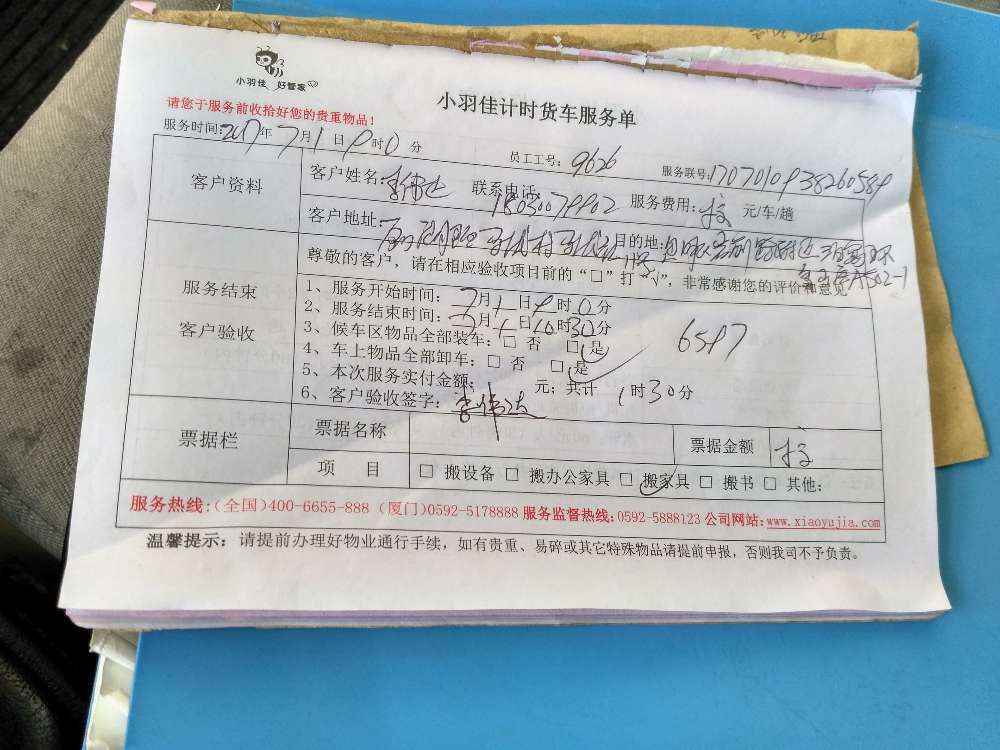 小羽佳 好管家
小羽佳计时货车服务单
请您于服务前收拾好您的贵重物品！
服务时间：2017年7月1日9时0分 员工工号：9626 服务联号：1707010938260584
客户资料
客户姓名：李伟达 联系电话：18030079902 服务费用： 元/车/趟
客户地址： 目的地：
尊敬的客户，请在相应验收项目前的“□”打√，非常感谢您的评价和意见
502-1
服务结束
客户验收
1、服务开始时间：7月1日9时0分
2、服务结束时间：7月1日10时30分
3、候车区物品全部装车：□ 否 □ 是
4、车上物品全部卸车：□ 否 □ 是
6597
5、本次服务实付金额： 元；共计 1时30分
6、客户验收签字：李伟达
票据栏
票据名称 票据金额
项 目 □ 搬设备 □ 搬办公家具 □ 搬家具 □ 搬书 □ 其他：
服务热线：（全国）400-6655-888（厦门）0592-5178888 服务监督热线：0592-5888123 公司网站：www.xiaoyujia.com
温馨提示：请提前办理好物业通行手续，如有贵重、易碎或其它特殊物品请提前申报，否则我司不予负责。